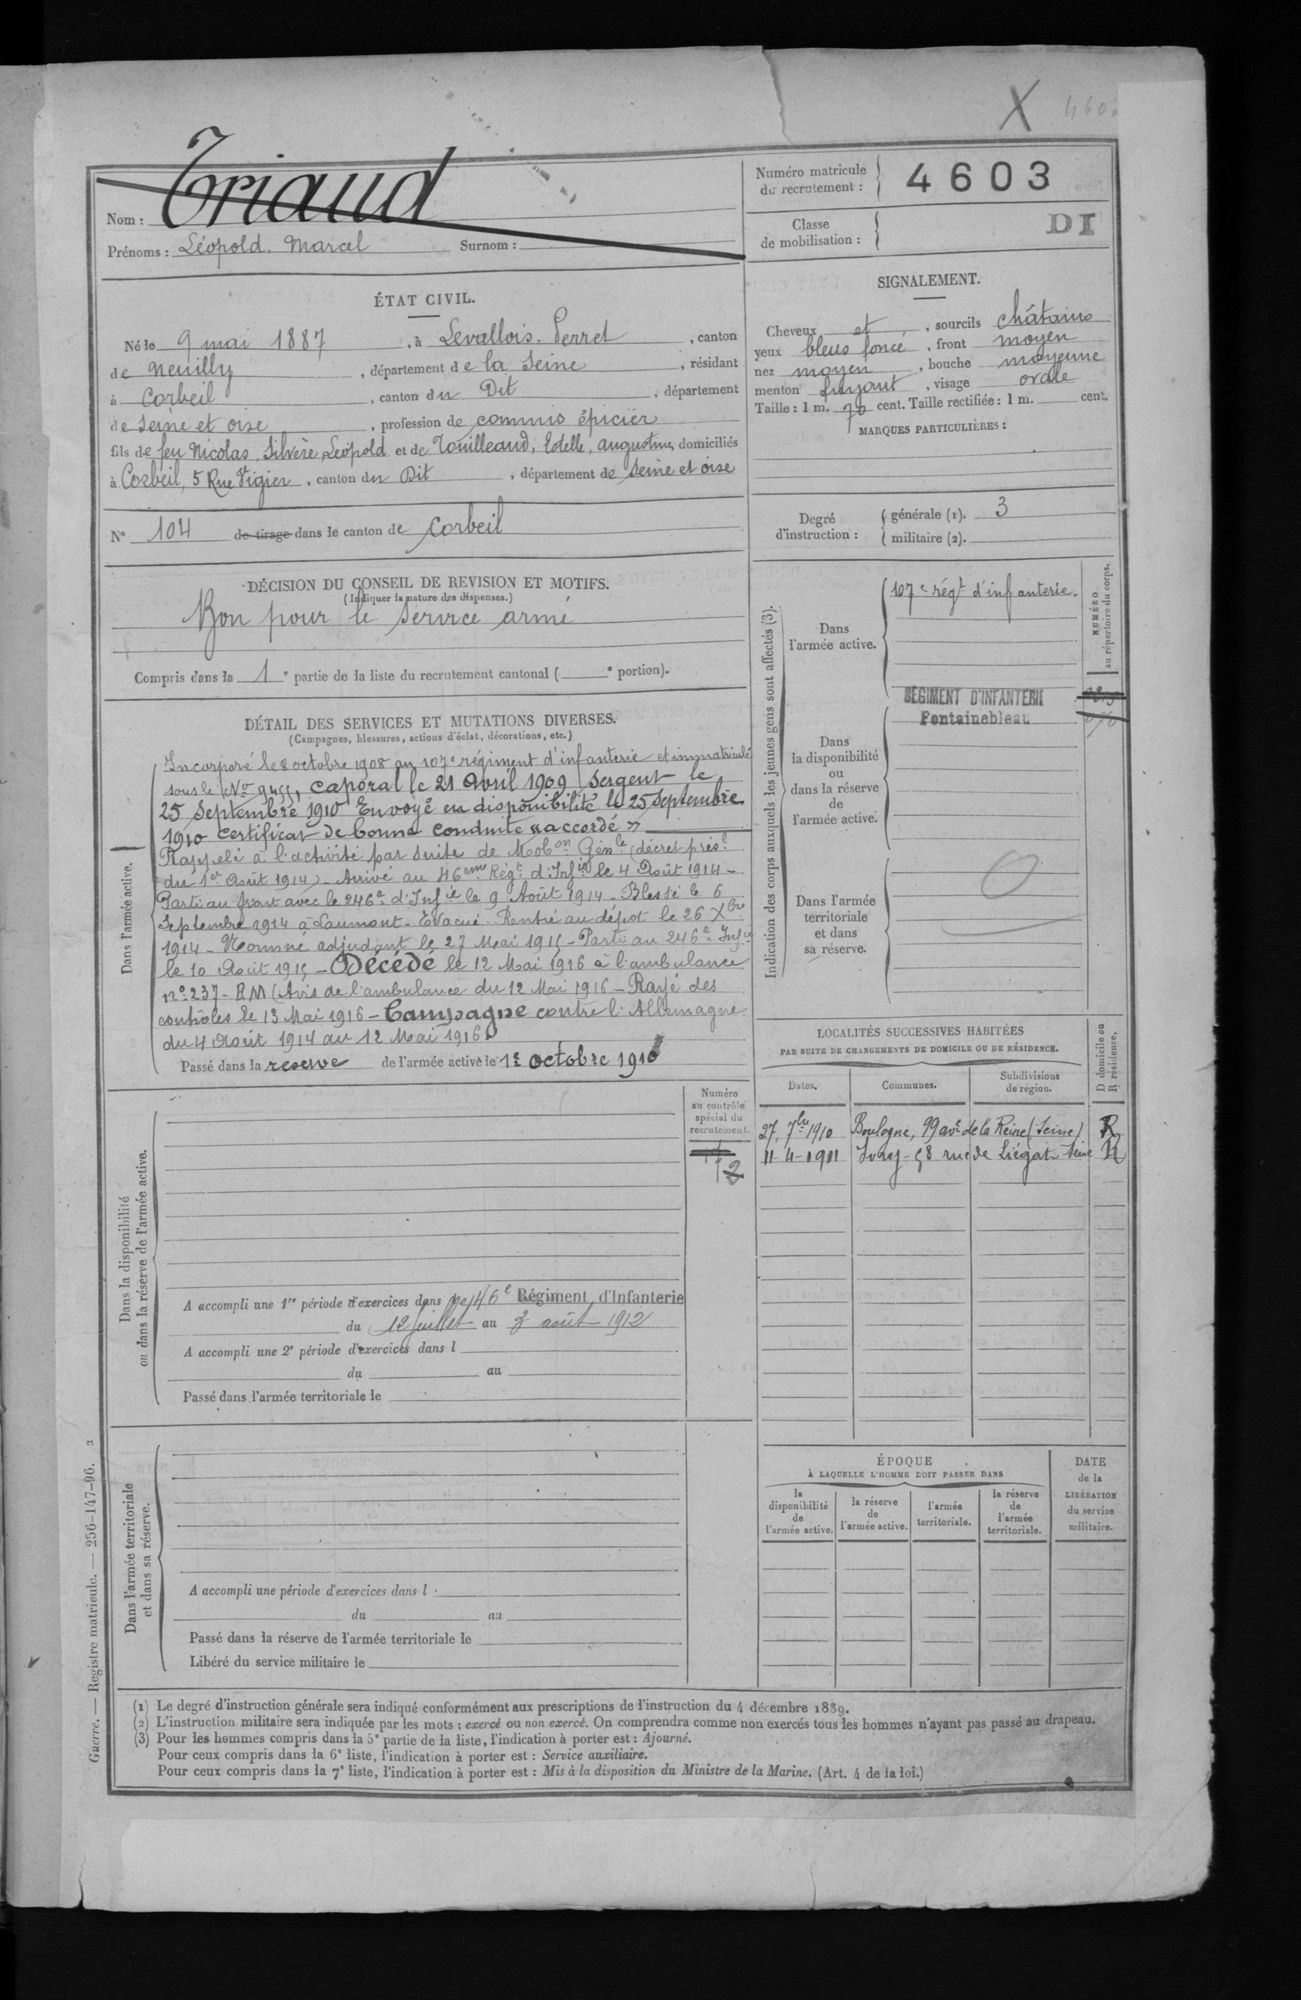 X
Nom : Triaud
Prénoms : Léopold. Marcel Surnom :
Numéro matricule
de recrutement : 4603
Classe
de mobilisation :
DI
ÉTAT CIVIL.
Né le 9 mai 1887, à Levallois-Perret, canton
de Neuilly, département de la Seine, résidant
à Corbeil, canton du Dit, département
de Seine et oise, profession de commis épicier
fils de feu Nicolas, Silvère Léopold et de Touilleaud, Edelle, augustine, domiciliés
à Corbeil, 5 Rue Vigier, canton du Dit, département de Seine et oise
N° 104 de tirage dans le canton de Corbeil
SIGNALEMENT.
Cheveux et, sourcils châtains
yeux bleus foncé, front moyen
nez moyen, bouche moyenne
menton fuyant, visage ovale
Taille : 1 m. 70 cent. Taille rectifiée : 1 m. cent.
MARQUES PARTICULIÈRES :
Degré
d'instruction :
générale (1). 3
militaire (2).
DÉCISION DU CONSEIL DE REVISION ET MOTIFS.
(Indiquer la nature des dispenses.)
Bon pour le service armé
Compris dans la 1e partie de la liste du recrutement cantonal ( e portion).
DÉTAIL DES SERVICES ET MUTATIONS DIVERSES.
(Campagnes, blessures, actions d'éclat, décorations, etc.)
Dans l'armée active.
Incorporé le 8 octobre 1908 au 107e régiment d'infanterie et immatriculé
sous le No, caporal le 21 avril 1909 Sergent le
25 Septembre 1910 Envoyé en disponibilité le 25 Septembre
1910 certificat de bonne conduite "accordé"
Rappelé à l'activité par suite de Mobon Génle (décret prést
du 1er Août 1914) - Arrivé au 46eme Régt d'Infie le 4 Août 1914 -
Parti au front avec le 246e d'Infie le 9 Août 1914 - Blessé le 6
Septembre 1914 à - Evacué - Rentré au dépot le 26 Xbre
1914 - Nommé adjudant le 27 Mai 1915 - Parti au 246e Infie
le 10 Août 1915 - Décédé le 12 Mai 1916 à l'ambulance
n° 237 - RM (Avis de l'ambulance du 12 Mai 1916 - Rayé des
contrôles le 13 Mai 1916 - Campagne contre l'Allemagne
du 4 Août 1914 au 12 Mai 1916
Passé dans la reserve de l'armée active le 1er octobre 1910
Indication des corps auxquels les jeunes gens sont affectés (3).
NUMÉRO
au répertoire du corps.
Dans
l'armée active.
107e régt d'infanterie.
RÉGIMENT D'INFANTERIE
Fontainebleau
Dans
la disponibilité
ou
dans la réserve
de
l'armée active.
Dans l'armée
territoriale
et dans
sa réserve.
LOCALITÉS SUCCESSIVES HABITÉES
PAR SUITE DE CHANGEMENTS DE DOMICILE OU DE RÉSIDENCE.
Dates. Communes. Subdivisions
de région.
D domicile ou
R résidence.
27, 7bre 1910 Boulogne, 99 avé de la Reine (Seine) R
11-4-1911 Ivry - 58 rue de Liégat Seine R
Dans la disponibilité
ou dans la réserve de l'armée active.
Numéro
au contrôle
spécial du
recrutement.
A accompli une 1re période d'exercices dans le 46e Régiment d'Infanterie
du 12 juillet au 3 août 1912
A accompli une 2e période d'exercices dans l
du au
Passé dans l'armée territoriale le
Dans l'armée territoriale
et dans sa réserve.
A accompli une période d'exercices dans l
du au
Passé dans la réserve de l'armée territoriale le
Libéré du service militaire le
ÉPOQUE
À LAQUELLE L'HOMME DOIT PASSER DANS
la
disponibilité
de
l'armée active.
la réserve
de
l'armée active.
l'armée
territoriale.
la réserve
de
l'armée
territoriale.
DATE
de la
LIBÉRATION
du service
militaire.
Guerre. — Registre matricule. — 256-147-96. 2
(1) Le degré d'instruction générale sera indiqué conformément aux prescriptions de l'instruction du 4 décembre 1889.
(2) L'instruction militaire sera indiquée par les mots : exercé ou non exercé. On comprendra comme non exercés tous les hommes n'ayant pas passé au drapeau.
(3) Pour les hommes compris dans la 5e partie de la liste, l'indication à porter est : Ajourné.
Pour ceux compris dans la 6e liste, l'indication à porter est : Service auxiliaire.
Pour ceux compris dans la 7e liste, l'indication à porter est : Mis à la disposition du Ministre de la Marine. (Art. 4 de la loi.)